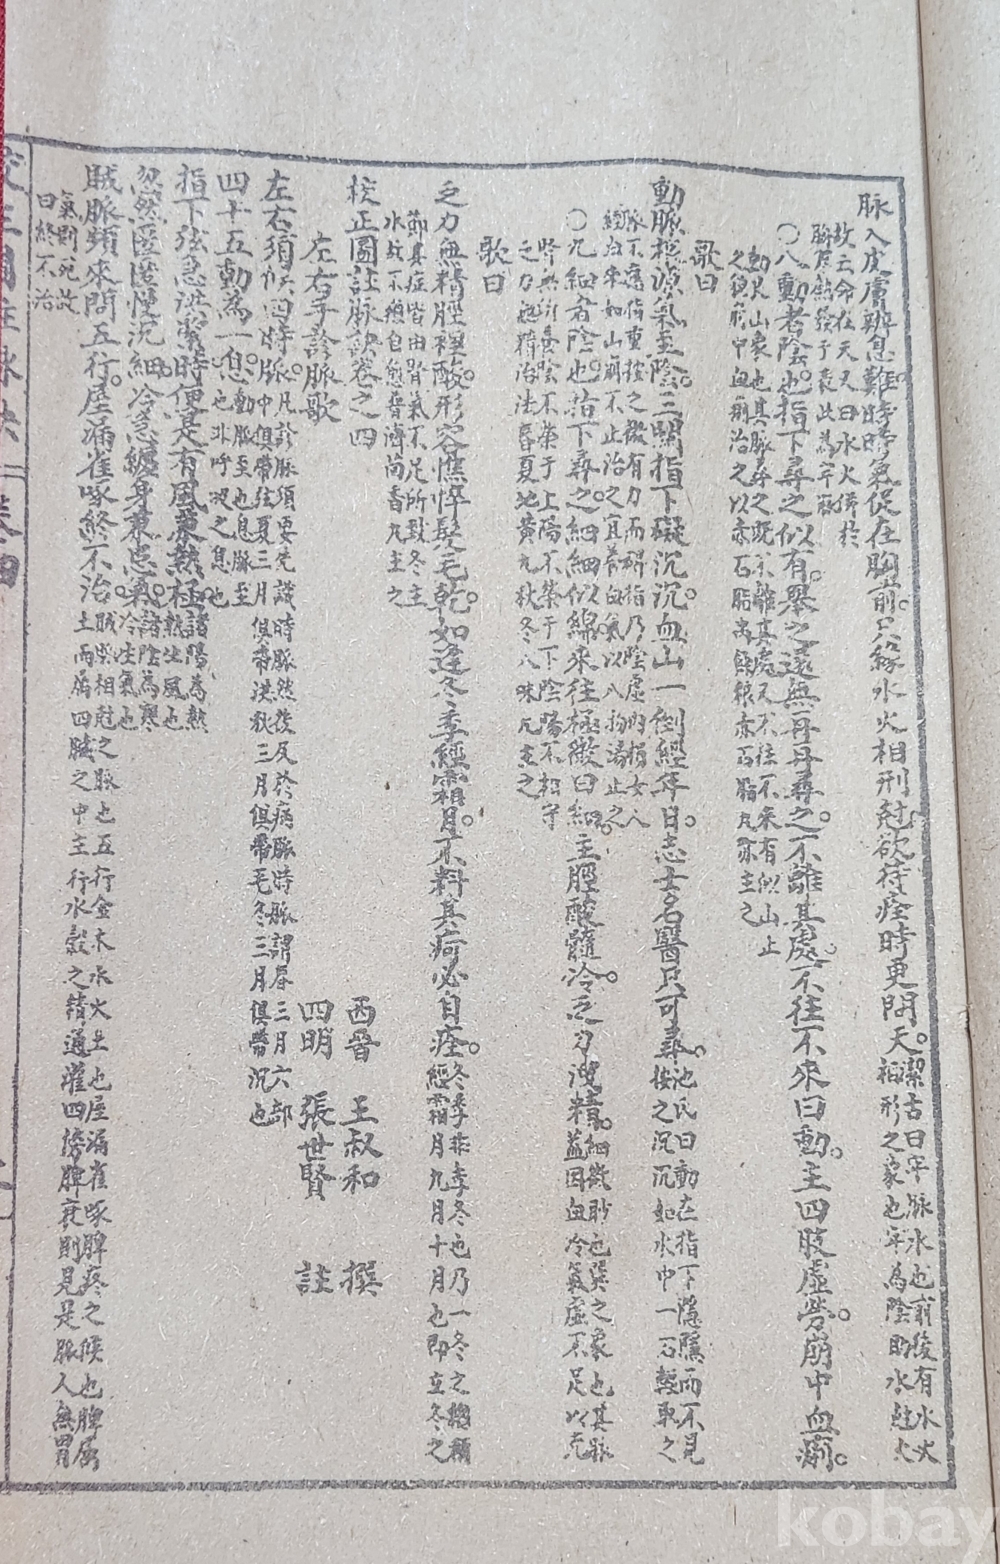 脉入皮膚辨息難。時時氣促在胸前。只緣水火相刑尅。欲待痊時更問天。潔古曰牢脉水也前後有水火
相形之象也牢為陰助水尅火
故云命在天又曰水火併於
○八動者陰也。指下尋之似有。舉之還無。再再尋之。不離其處。不往不來曰動。主四肢虛勞。崩中血痢。
動只山象也其脉尋之既不離其處又不往不來有似山止
之復於中血痢治之以赤石脂禹餘粮赤石脂丸亦主之
歌曰
動脉根源氣主陰。三關指下礙沉沉。血山一倒經年日。志士名醫只可尋。池氏曰動在指下隱隱而不見
按之沉沉如水中一石輕取之
脉不應指重按之微有力而碍指乃陰虛內損女人
經自來如山崩不止治之宜養血氣以八物湯止之
○九細者陰也。指下尋之。細細似線。來往極微曰細。主脛酸髓冷。乏力泄精。細微眇也巽之象也其脉
蓋因血冷氣虛不足以充
腎無所養陰不榮于上陽不榮于下陰陽不相守
乏力遺精治法春夏地黃丸秋冬八味丸主之
歌曰
乏力無精脛裡酸。形容憔悴髮毛乾。如逢冬季經霜月。不料其痾必自痊。冬季非季冬也乃一冬之總稱
經霜月九月十月也即立冬之
節其症皆由腎氣不足所致冬主
水故不療自愈普濟茴香丸主之
校正圖註脉訣卷之四
西晉 王叔和 撰
四明 張世賢 註
左右手診脈歌
左右須候四時脈。凡診脈須要先識時脈然後及於病脈時脈謂春三月六部
中俱帶弦夏三月俱帶洪秋三月俱帶毛冬三月俱帶沉也
四十五動為一息。動脈至也息脈至
也非呼吸之息也
指下弦急洪緊時。便是有風兼熱極。諸陽為熱
熱生風也
忽然匿匿慢沉細。冷急纏身兼患氣。諸陰為寒
冷生氣也
賊脈頻來問五行。屋漏雀啄終不治。賊脈相尅之脉也五行金木水火土也屋漏雀啄脾疼之候也脾屬
土而屬四臟之中主行水穀之精通灌四傍脾衰則見是脉人無胃
氣則死故
曰終不治